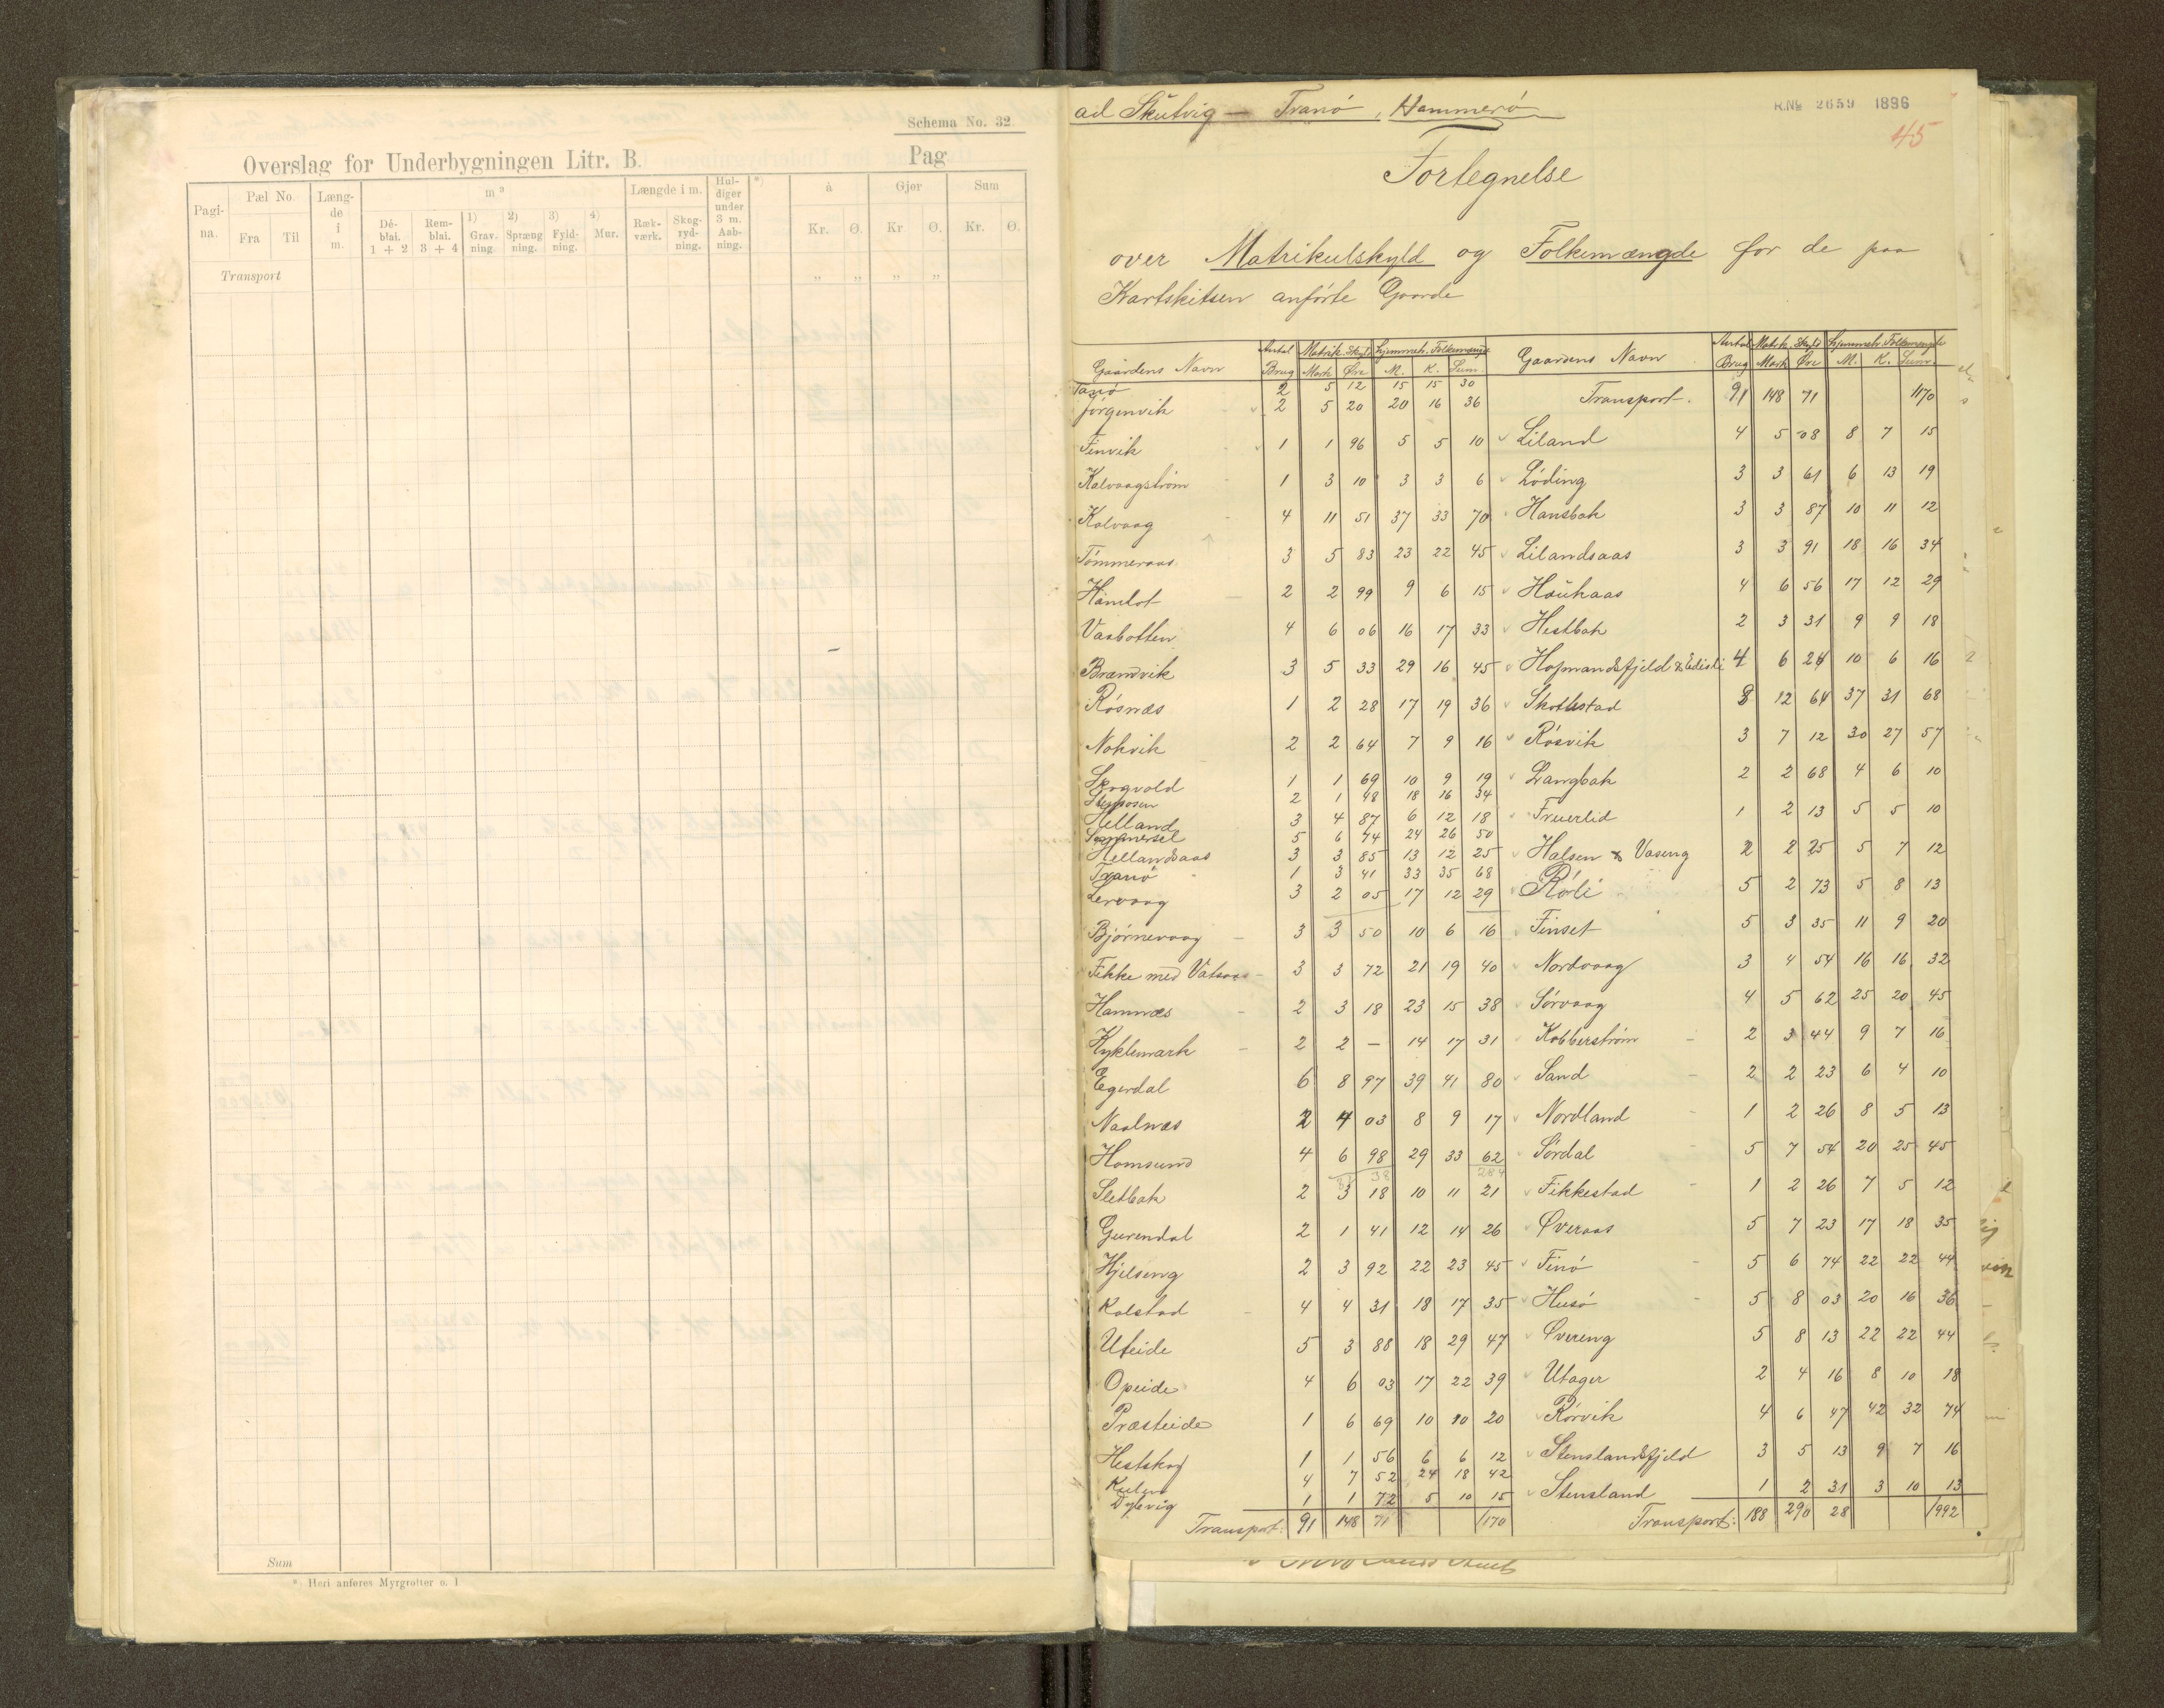 Schema No. 32
Overslag for Underbygningen Litr. B.
Pag
Pagi-na. Pæl No Fra Til Læng-de i m. m³ Dé-blai. 1 + 2 Rem-blai. 3 + 4 1) Grav-ning. 2) Spræng ning. 3) Fyld-ning. 4) Mur. Længde i m. Ræk-værk. Skog-ryd-ning. Hul-diger under 3 m. Aab-ning. *) à Kr. Ø. Gjør Kr Ø. Sum Kr. Ø.
Transport „ „ „ „
Sum
* Heri anføres Myrgrøfter o. l
ad Skutvig — Tranö, Hammerö
R.No 2659 1896
45
Fortegnelse
over Matrikulskyld og Folkemængde for de paa
Kartskitsen anförte Gaarde
Gaardens Navn Antal Brug Matrik. Skyld Mark Øre Hjemmeh. Folkemængde M. K. Sum.
Tanö 2 5 12 15 15 30
Jörgenvik 2 5 20 20 16 36
Finvik 1 1 96 5 5 10
Kalvaagström 1 3 10 3 3 6
Kalvaag 4 11 51 37 33 70
Tömmeraas 3 5 83 23 22 45
Hamlot 2 2 99 9 6 15
Vasbotten 4 6 06 16 17 33
Brændvik 3 5 33 29 16 45
Rösnæs 1 2 28 17 19 36
Nokvik 2 2 64 7 9 16
Skogvold 1 1 69 10 9 19
2 1 48 18 16 34
Helland 3 4 87 6 12 18
Sommersel 5 6 74 24 26 50
Hellandsaas 3 3 85 13 12 25
Tranö 1 3 41 33 35 68
Lervaag 3 2 05 17 12 29
Björnevaag 3 3 50 10 6 16
Fikke med Vatsaas 3 3 72 21 19 40
Hamnæs 2 3 18 23 15 38
Kyklemark 2 2 — 14 17 31
Egerdal 6 8 97 39 41 80
Naalnæs 2 4 03 8 9 17
Homsund 4 6 98 29 33 62
Sletbak 2 3 18 10 11 21
Gurendal 2 1 41 12 14 26
Hjelseng 2 3 92 22 23 45
Kalstad 4 4 31 18 17 35
Uteide 5 3 88 18 29 47
Opeide 4 6 03 17 22 39
Præsteide 1 6 69 10 10 20
Hestskog 1 1 56 6 6 12
4 7 52 24 18 42
Dypvig 1 1 72 5 10 15
Transport: 91 148 71 1170
Gaardens Navn Antal Brug Matrik. Skyld Mark Øre Hjemmeh. Folkemængde M. K. Sum.
Transport. 91 148 71 1170
Liland 4 5 08 8 7 15
Löding 3 3 61 6 13 19
Hansbak 3 3 87 10 11 12
Lilandsaas 3 3 91 18 16 34
Haukaas 4 6 56 17 12 29
Hestbak 2 3 31 9 9 18
Hopmandsfjeld & Edisli 4 6 24 10 6 16
Skottestad 8 12 64 37 31 68
Rösvik 3 7 12 30 27 57
Langbak 2 2 68 4 6 10
Fruerlid 1 2 13 5 5 10
Halsen & Vaseng 2 2 25 5 7 12
Rörli 5 2 73 5 8 13
Finset 5 3 35 11 9 20
Nordvaag 3 4 54 16 16 32
Sörvaag 4 5 62 25 20 45
Kobberström 2 3 44 9 7 16
Sand 2 2 23 6 4 10
Nordland 1 2 26 8 5 13
Sördal 5 7 54 20 25 45
Fikkestad 1 2 26 7 5 12
Øveraas 5 7 23 17 18 35
Finö 5 6 74 22 22 44
Husö 5 8 03 20 16 36
Øvereng 5 8 13 22 22 44
Utager 2 4 16 8 10 18
Rörvik 4 6 47 42 32 74
Stenslandsfjeld 3 5 13 9 7 16
Stensland 1 2 31 3 10 13
Transport: 188 290 28 1992